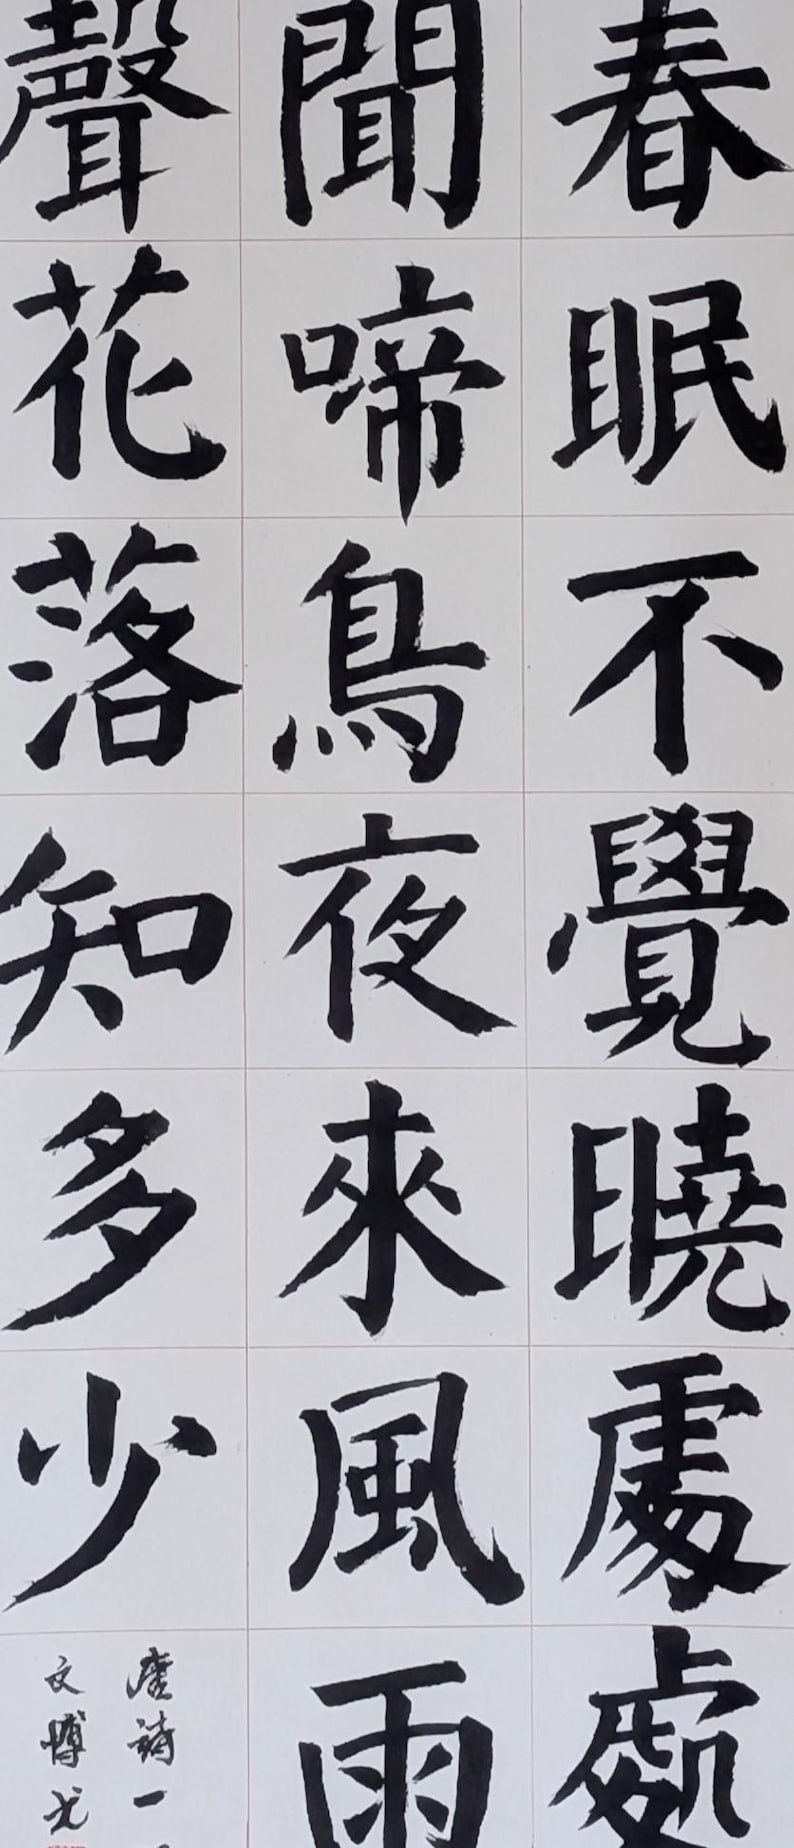 春眠不覺曉處處
聞啼鳥夜來風雨
聲花落知多少
唐詩一
文博書